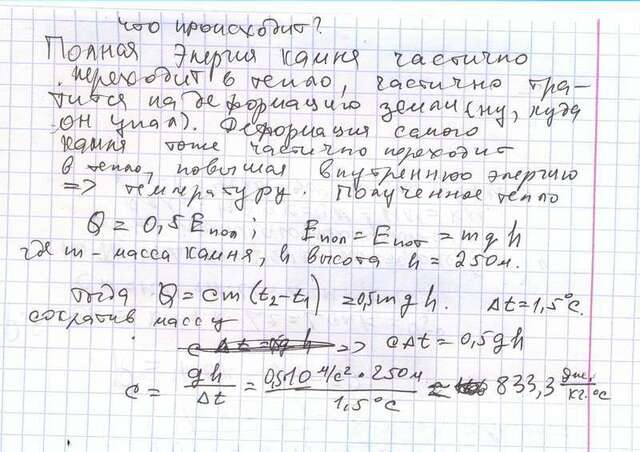 что происходит?
Полная энергия камня частично
переходит в тепло, частично тра-
тится на деформацию земли (ну, куда
он упал). Деформация самого
камня тоже частично переходит
в тепло, повышая внутреннюю энергию
=> температуру. Полученное тепло
Q = 0,5 Eпол; Eпол = Eпот = mgh
где m - масса камня, h высота h = 250м.
тогда Q = cm(t2-t1) = 0,5mgh. Δt = 1,5°C.
сократив массу
=> cΔt = 0,5gh
c = gh/Δt = 0,5·10 м/c²·250м / 1,5°C = 833,3 дж./кг·°C